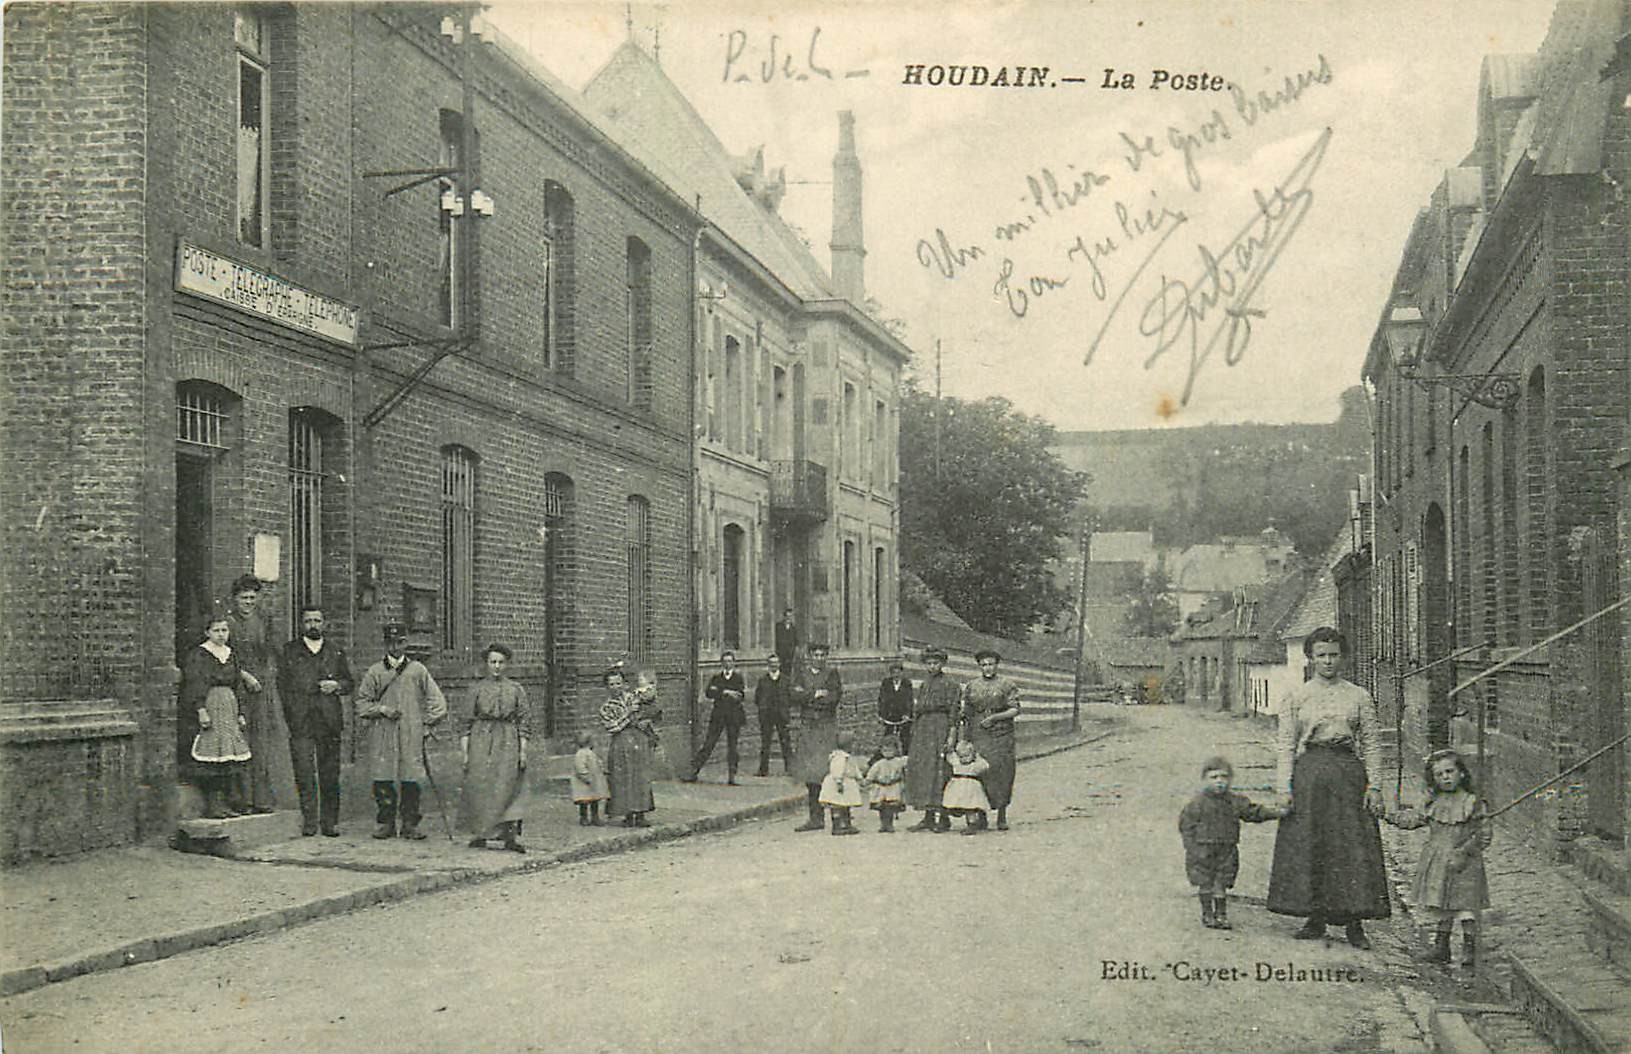 P.de.C -
HOUDAIN.— La Poste.
Un millier de gros baisers
Ton Julien
POSTE - TÉLÉGRAPHE - TÉLÉPHONE
CAISSE D'ÉPARGNE
Edit. Cayet-Delautre.